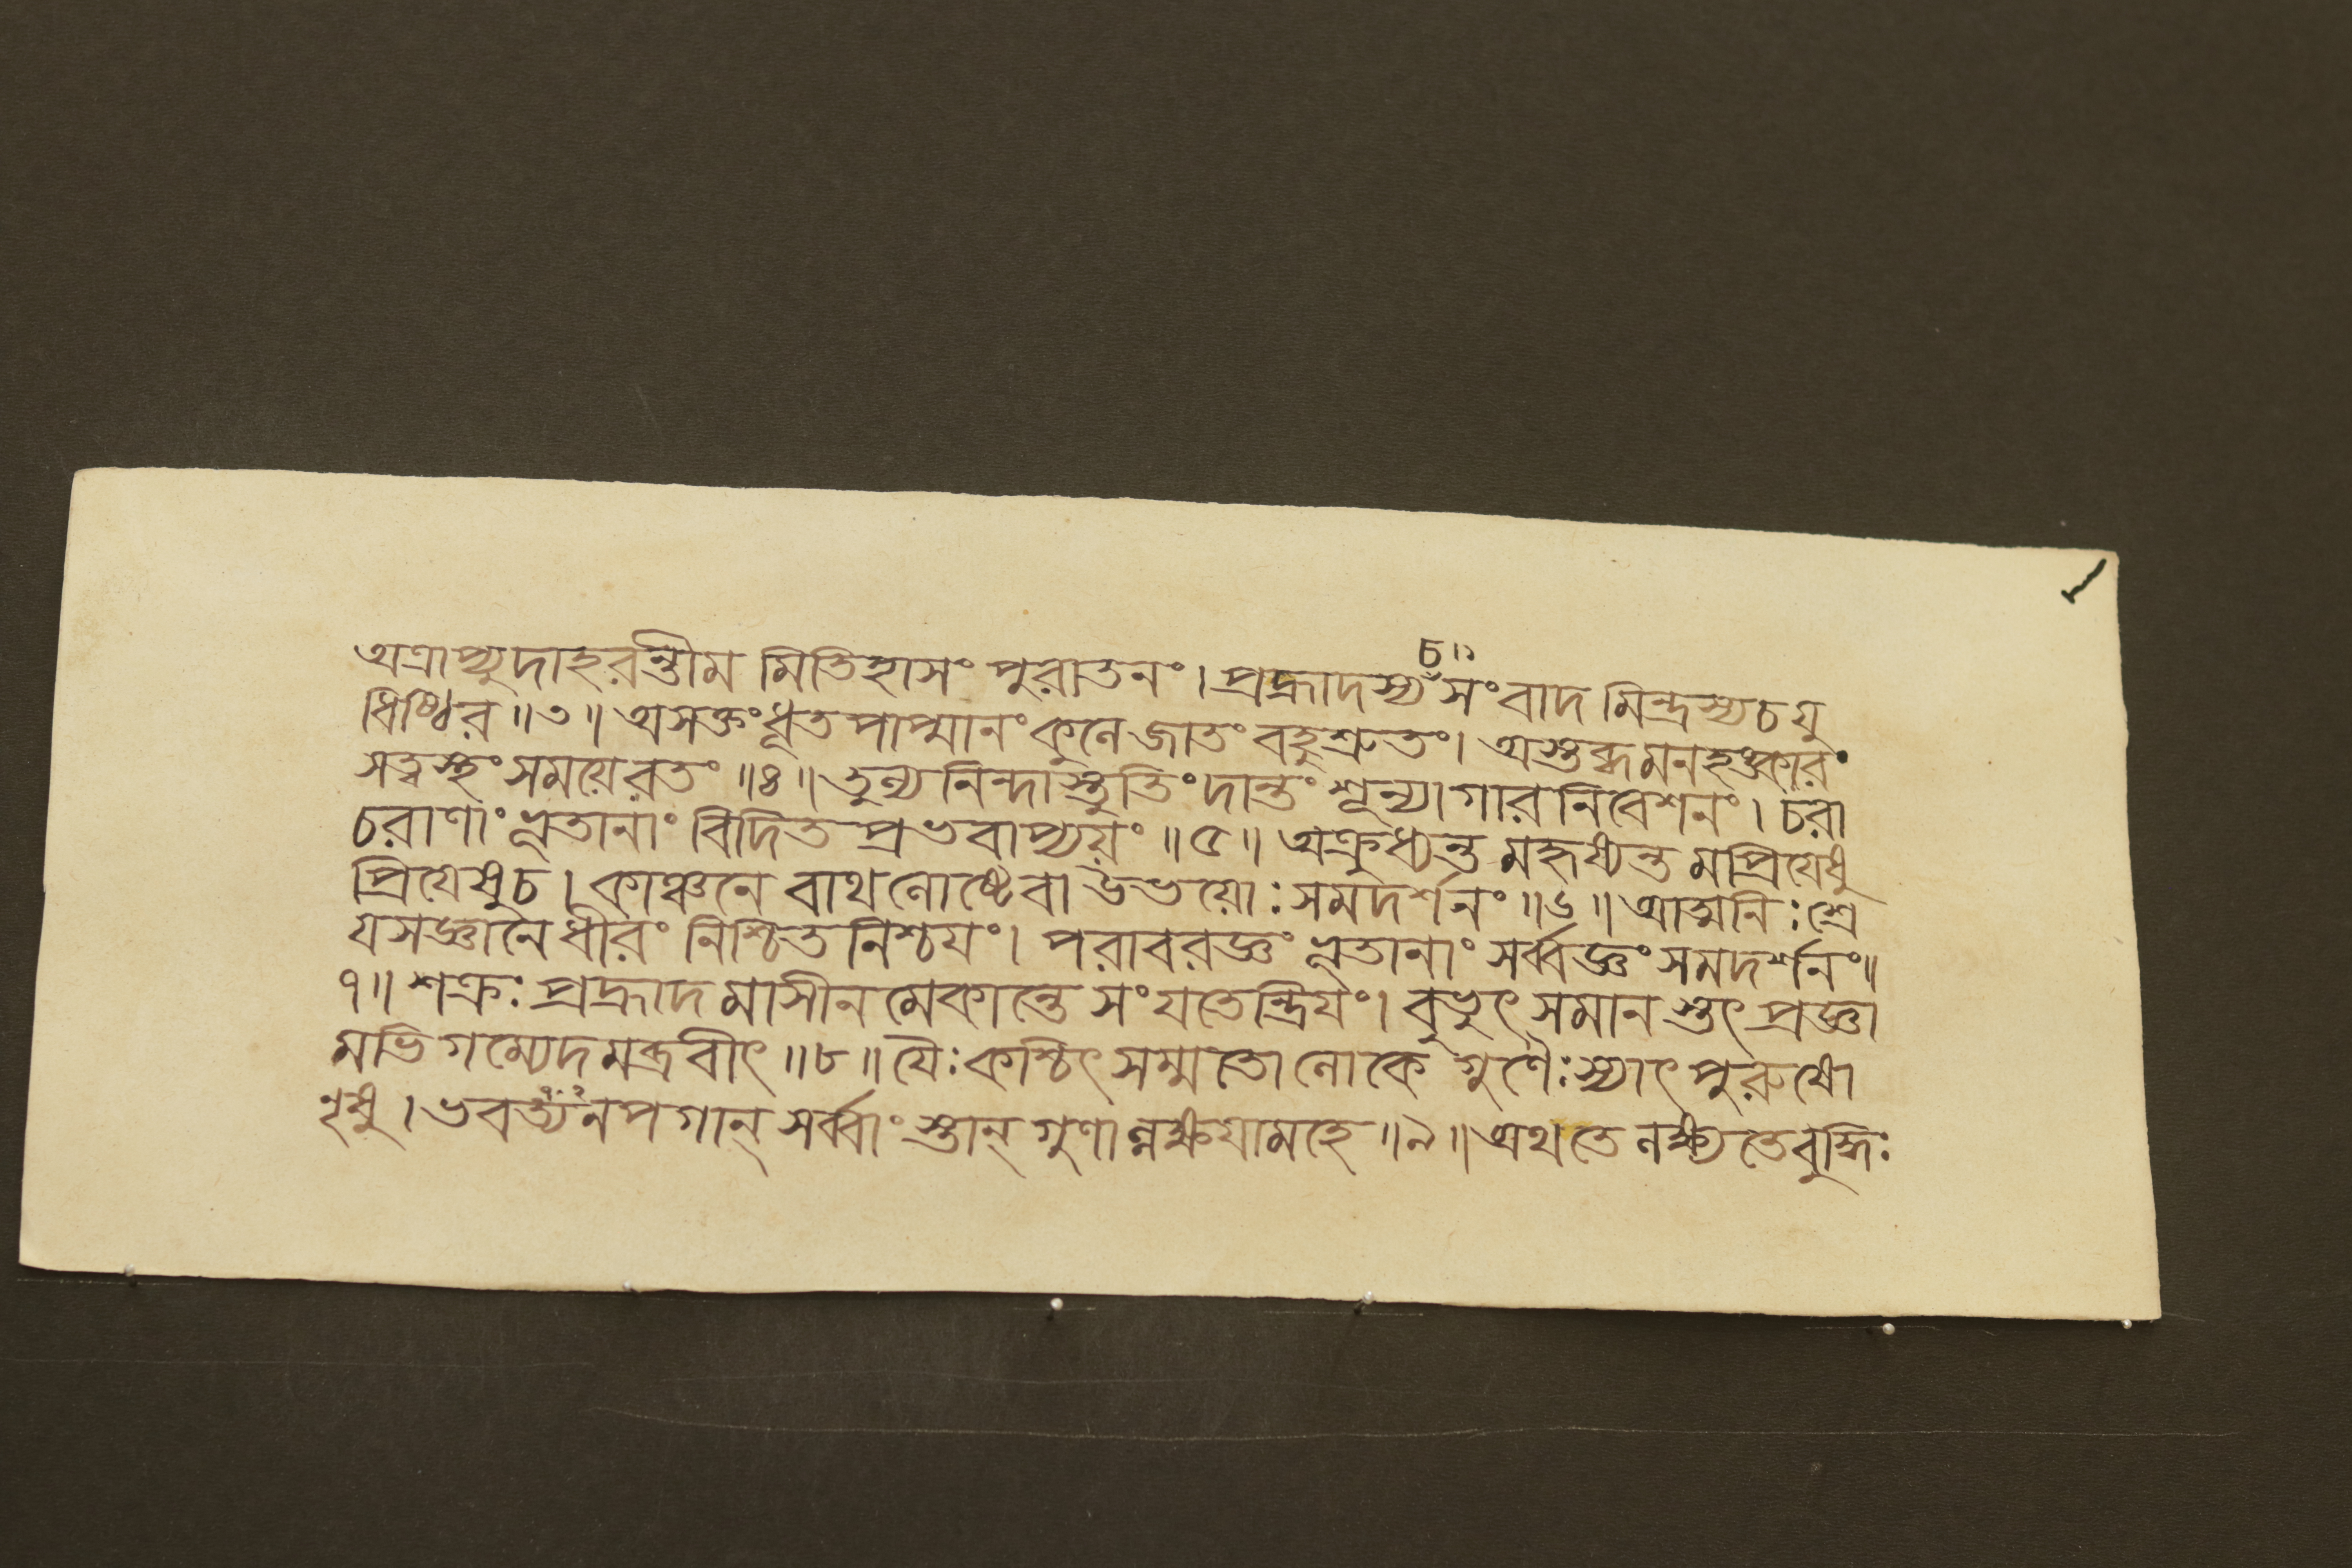 চ॥
অত্রাপ্যুদাহরন্তীম মিতিহাসং পুরাতনং। প্রহ্লাদস্য সংবাদ মিন্দ্রস্যচ যু
ধিষ্ঠির॥৩॥ অসক্তং ধূত পাপ্মানং কুলে জাতং বহুশ্রুতং। অস্তব্ধমনহঙ্কারং
সত্ত্বস্থং সময়েরতং॥৪॥ তুল্য নিন্দাস্তুতিং দান্তং শূন্যাগার নিবেশনং। চরা
চরাণাং ভূতানাং বিদিত প্রভবাপ্যয়ং॥৫॥ অক্রুধ্যন্ত মহৃষ্যন্ত মপ্রিযেষু
প্রিযেষুচ। কাঞ্চনে বাথ লোষ্টেবা উভয়োঃ সমদর্শনং॥৬॥ আত্মনিঃশ্রে
যসজ্ঞানে ধীরং নিশ্চিত নিশ্চযং। পরাবরজ্ঞং ভূতানাং সর্ব্বজ্ঞং সমদর্শনং॥
৭॥ শক্রঃ প্রহ্লাদ মাসীন মেকান্তে সংযতেন্দ্রিযং। বুভুৎ সমান স্তৎ প্রজ্ঞা
মভি গম্যেদ মব্রবীৎ॥৮॥ যৈঃ কশ্চিৎ সম্মতো লোকে গুণৈঃ স্যাৎ পুরুষো
নৃষু। ভবত্যনপগান্ সর্ব্বাং স্তান্ গুণাল্লক্ষযামহে॥৯॥ অথ তে লক্ষ্যতে বুদ্ধিঃ